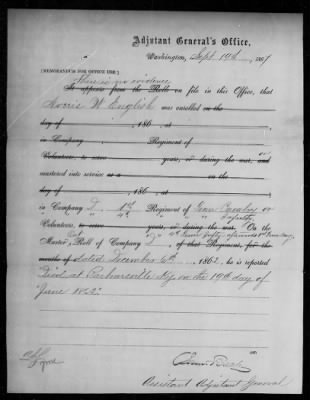 Adjutant General's Office,
Washington, Sept. 19th, 1867
[MEMORANDUM FOR OFFICE USE.]
There is no evidence
It appears from the Rolls on file in this Office, that
Morris W. English was enrolled on the
day of , 186 , at
in Company , Regiment of
Volunteers, to serve years, or during the war, and
mustered into service as a on the
day of , 186 , at
in Company D 1st Regiment of Tenn Cavalry or
" " 4th " " Infantry
Volunteers, to serve years, or during the war. On the
Muster Roll of Company D, 4th Tenn Infty afterwards 1st Tenn Cavy, of that Regiment, for the
months of dated December 6th, 1862, he is reported
"Died at Barboursville Ky. on the 19th day of
June 1862."
Assistant Adjutant General